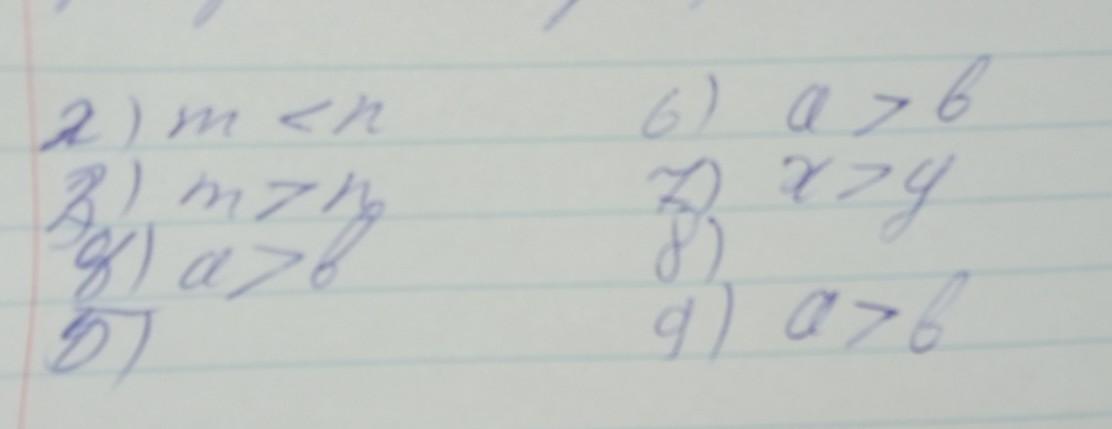 2) m < n
3) m > n
4) a > b
5)
6) a > b
7) x > y
8)
9) a > b